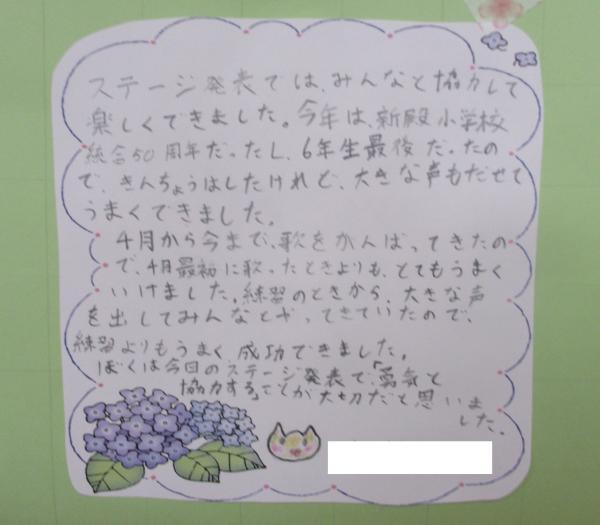 ステージ発表では、みんなと協力して
楽しくできました。今年は、新殿小学校
統合50周年だったし、6年生最後だったの
で、きんちょうはしたけれど、大きな声もだせて
うまくできました。
4月から今まで、歌をがんばってきたの
で、4月最初に歌ったときよりも、とてもうまく
いけました。練習のときから、大きな声
を出してみんなとやってきていたので、
練習よりもうまく成功できました。
ぼくは今回のステージ発表で、「勇気と
協力する」ことが大切だと思いま
した。